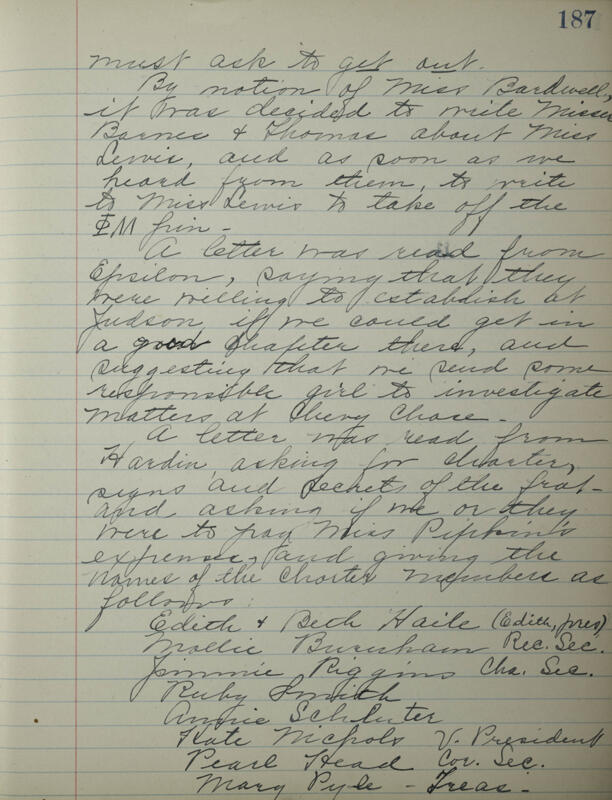 187
must ask to get out.
By notion of Miss Bardwell,
it was decided to write Misses
Barnes & Thomas about Miss
Lewis, and as soon as we
heard from them, to write
to Miss Lewis to take off the
ΦM pin -
A letter was read from
Epsilon, saying that they
were willing to establish at
Judson if we could get in
a good chapter there, and
suggesting that we send some
responsible girl to investigate
matters at Chevy Chase -
A letter was read from
Hardin, asking for charter,
signs and secrets of the frat -
and asking if we or they
were to pay Miss Pipkin's
expense, and giving the
names of the charter members as
follows:
Edith & Beth Haile (Edith, pres)
Mollie Burnham Rec. Sec.
Jimmie Riggins Cha. Sec.
Ruby Smith
Annie Schluter
Kate Nichols V. President
Pearl Head Cor. Sec.
Mary Pyle - Treas -